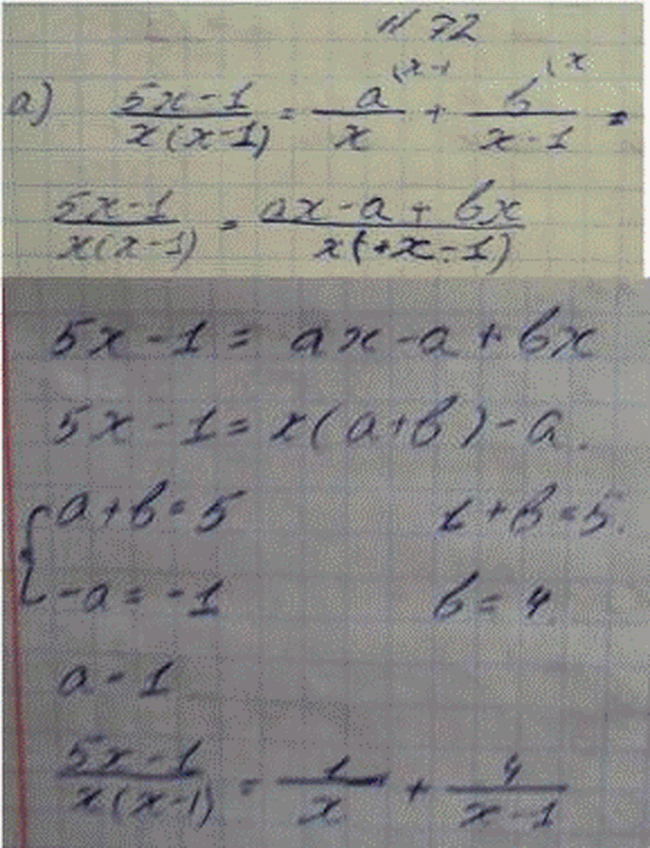 № 72
а) (5x-1)/(x(x-1)) = a/x (x-1 + b/(x-1) (x =
(5x-1)/(x(x-1)) = (ax-a+bx)/(x(+x-1))
5x-1 = ax-a+bx
5x-1 = x(a+b)-a.
{a+b=5 1+b=5.
-a=-1 b=4
a-1
(5x-1)/(x(x-1)) = 1/x + 4/(x-1)